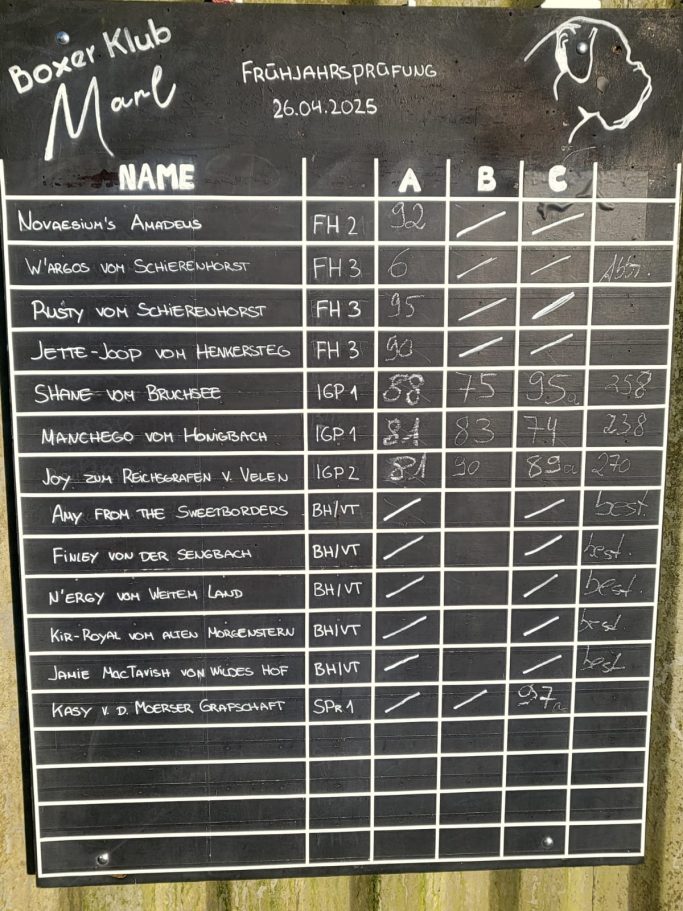 Boxer Klub
Marl
FRÜHJAHRSPRÜFUNG
26.04.2025
NAME A B C
NOVAESIUM'S AMADEUS FH 2 92 / /
W'ARGOS VOM SCHIERENHORST FH 3 6 / / Abbr.
RUSTY VOM SCHIERENHORST FH 3 95 / /
JETTE-JOOP VOM HENKERSTEG FH 3 90 / /
SHANE VOM BRUCHSEE IGP 1 88 75 95a 258
MANCHEGO VOM HONIGBACH IGP 1 81 83 74 238
JOY ZUM REICHSGRAFEN V. VELEN IGP 2 81 90 89a 270
AMY FROM THE SWEETBORDERS BH/VT / / best.
FINLEY VON DER SENGBACH BH/VT / / best.
N'ERGY VOM WEITEM LAND BH/VT / / best.
KIR-ROYAL VOM ALTEN MORGENSTERN BH/VT / / best
JAMIE MACTAVISH VON WILDES HOF BH/VT / / best.
KASY V. D. MOERSER GRAFSCHAFT SPR 1 / / 97a